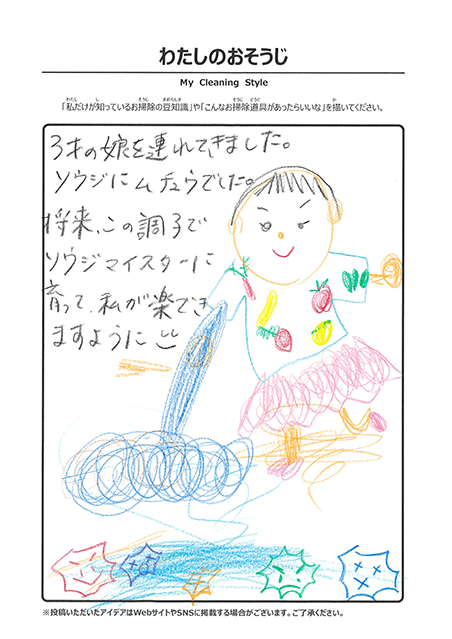 わたしのおそうじ
My Cleaning Style
「私だけが知っているお掃除の豆知識」や「こんなお掃除道具があったらいいな」を描いてください。
3才の娘を連れてきました。
ソウジにムチュウでした。
将来、この調子で
ソウジマイスターに
育って、私が楽でき
ますように
※投稿いただいたアイデアはWebサイトやSNSに掲載する場合がございます。ご了承ください。